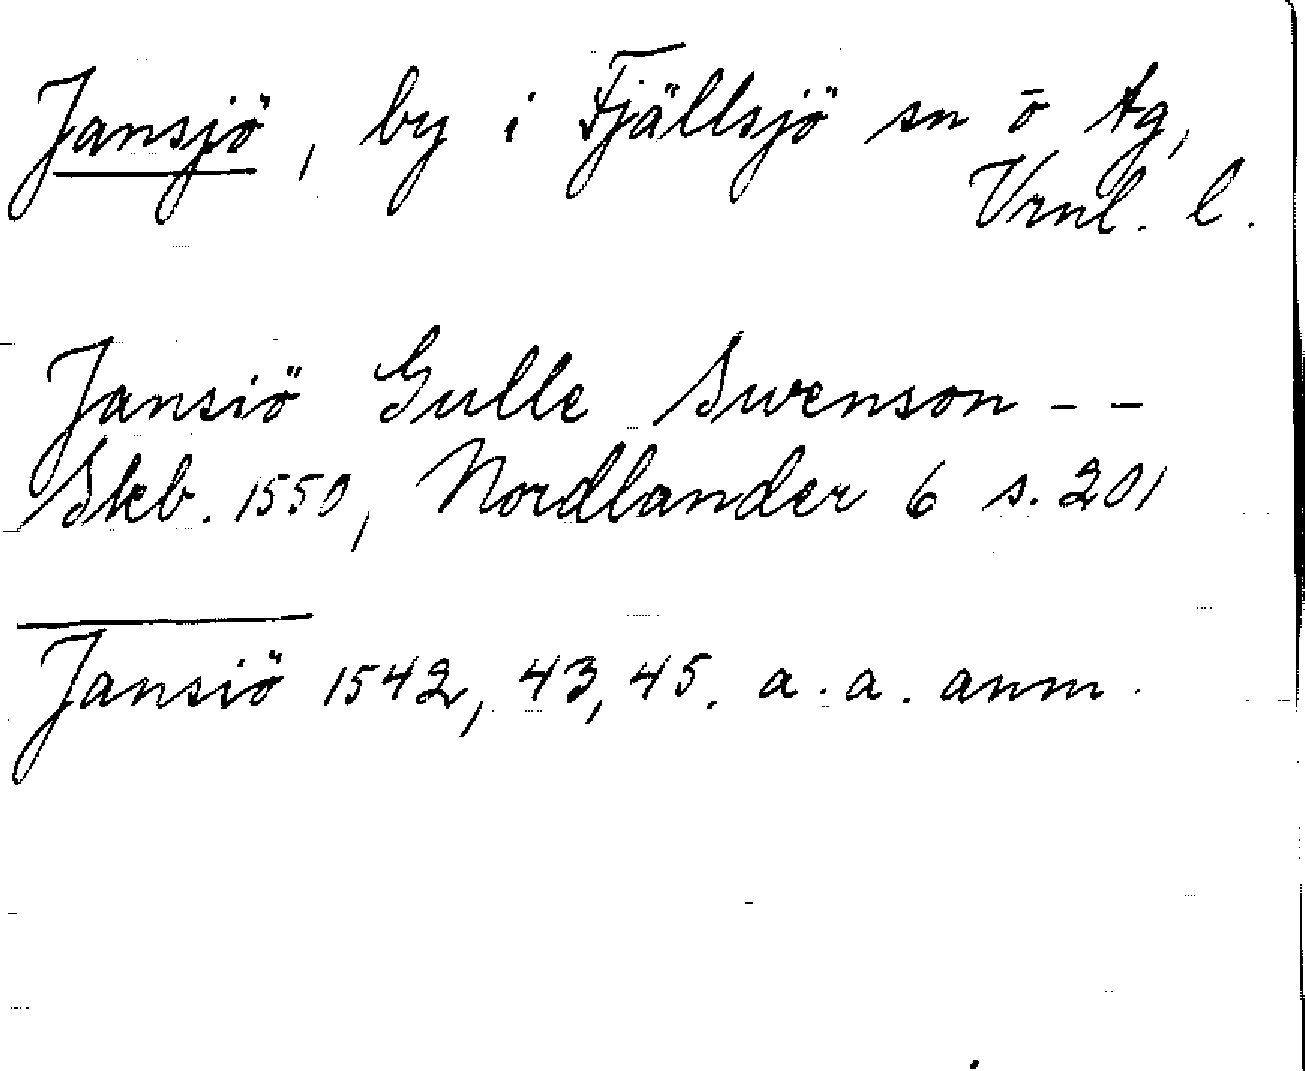 Jansjö, by i Fjällsjö sn ō tg,
Vrnl. l.
Jansiö Gulle Swenson - -
Skb. 1550, Nordlander 6 s. 201
Jansiö 1542, 43, 45. a. a. anm.